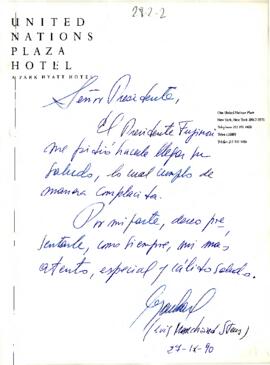 282-2
UNITED
NATIONS
PLAZA
HOTEL
A PARK HYATT HOTEL
One United Nations Plaza
New York, New York
Señor Presidente,
El Presidente Fujimori
me pidió hacerle llegar su
saludo, lo cual cumplo de
manera complacida.
Por mi parte, deseo pre-
sentarle, como siempre, mi más
atento, especial y cálido saludo.
(Luis Marchand Stens)
27-IX-90